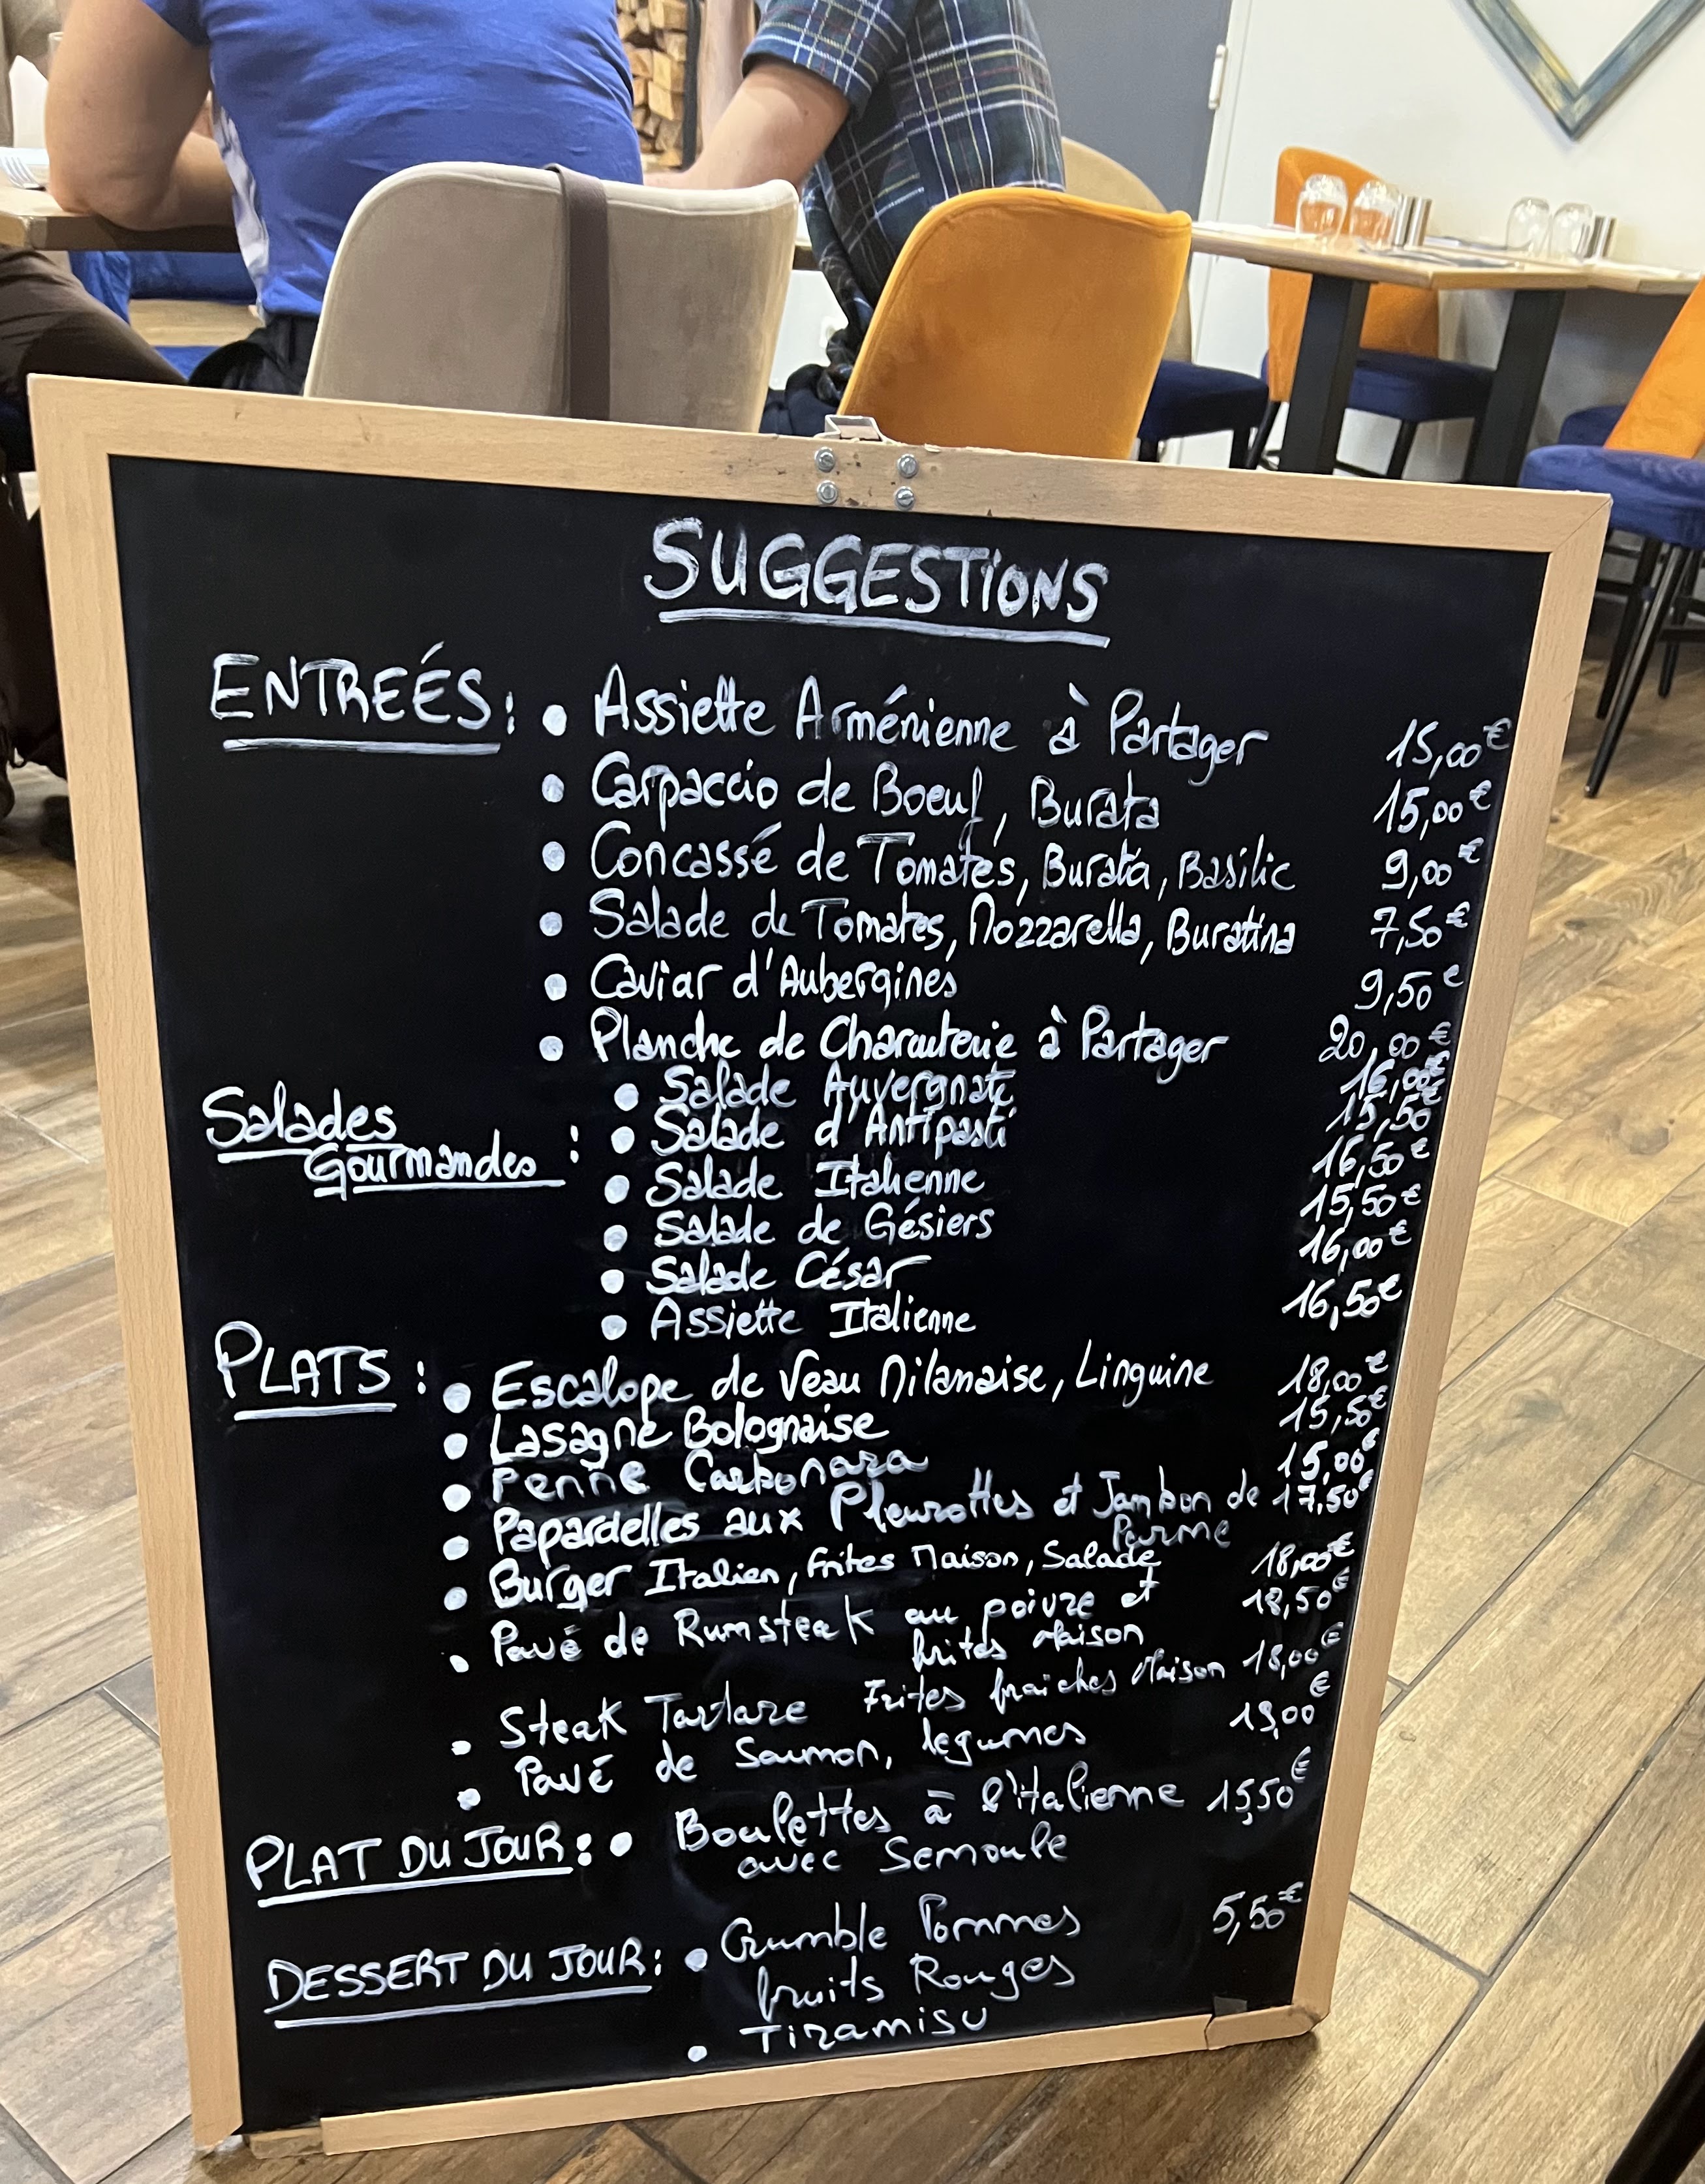 SUGGESTIONS
ENTREÉS : • Assiette Arménienne à Partager 15,00€
• Carpaccio de Boeuf, Burata 15,00€
• Concassé de Tomates, Burata, Basilic 9,00€
• Salade de Tomates, Mozzarella, Buratina 7,50€
• Caviar d'Aubergines 9,50€
• Planche de Charcuterie à Partager 20,00€
Salades Gourmandes : • Salade Auvergnate 16,00€
• Salade d'Antipasti 15,50€
• Salade Italienne 16,50€
• Salade de Gésiers 15,50€
• Salade César 16,00€
• Assiette Italienne 16,50€
PLATS : • Escalope de Veau Milanaise, Linguine 18,00€
• Lasagne Bolognaise 15,50€
• Penne Carbonara 15,00€
• Papardelles aux Pleurottes et Jambon de 17,50€
Parme
• Burger Italien, Frites Maison, Salade 18,00€
• Pavé de Rumsteak au poivre et 18,50€
frites Maison
• Steak Tartare Frites fraiches Maison 18,00€
• Pavé de Saumon, legumes 19,00€
PLAT DU JOUR : • Boulettes à l'italienne 15,50€
avec Semoule
DESSERT DU JOUR : • Crumble Pommes 5,50€
fruits Rouges
• Tiramisu